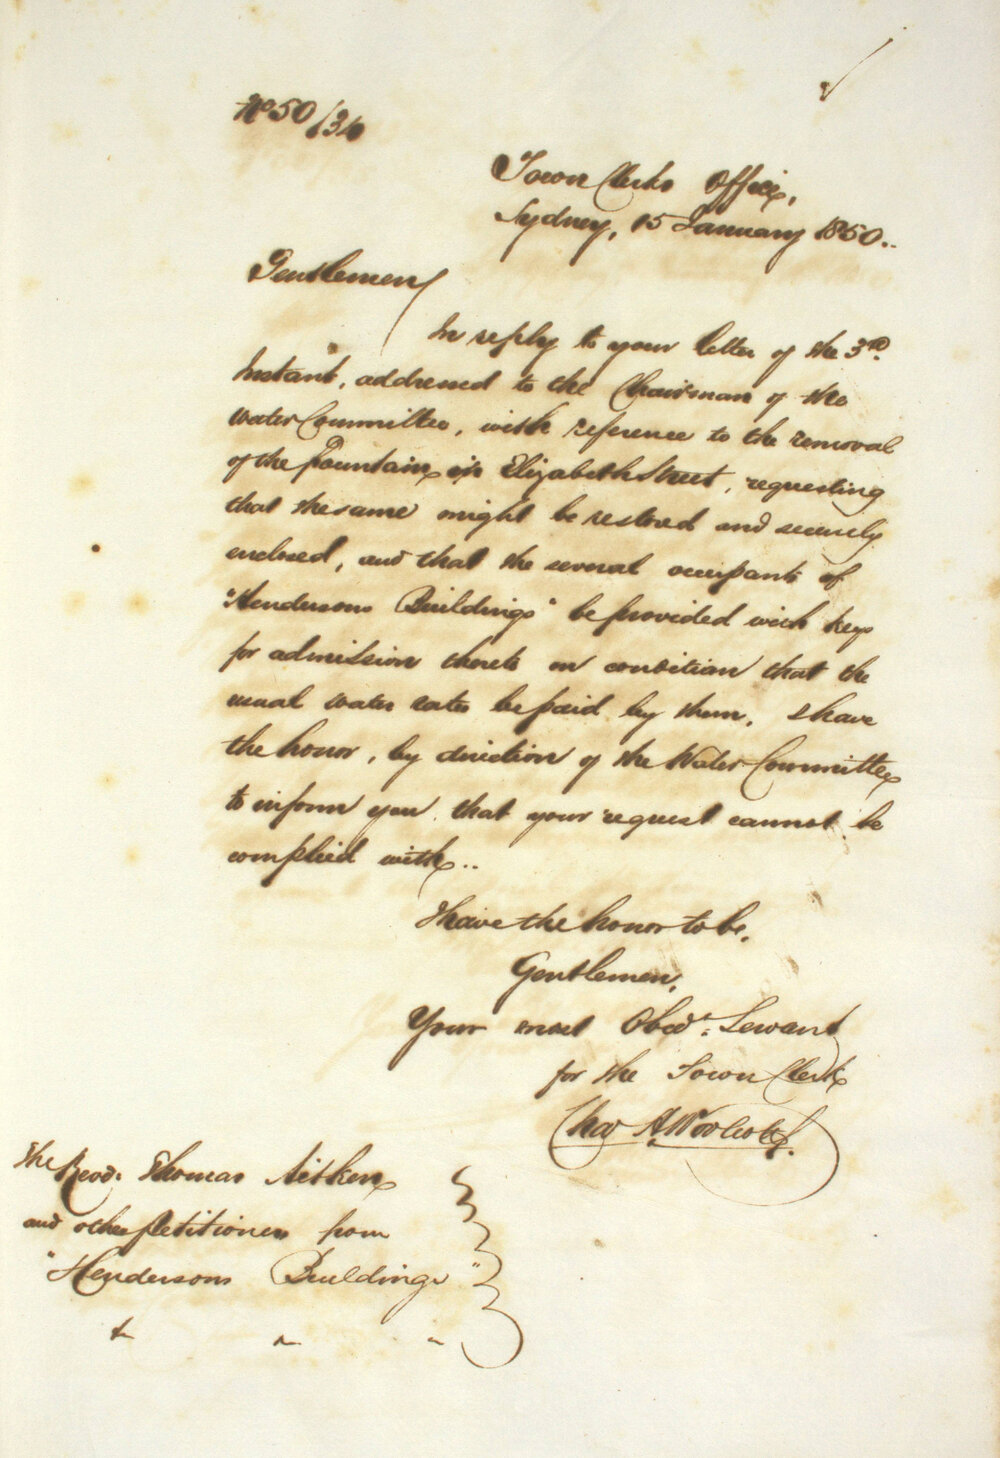 No 50/34
Town Clerks Office,
Sydney, 15 January 1850..
Gentlemen
In reply to your letter of the 3rd.
Instant, addressed to the Chairman of the
Water Committee, with reference to the removal
of the fountain in Elizabeth Street, requesting
that the same might be restored and securely
enclosed, and that the several occupants of
"Hendersons Buildings" be provided with keys
for admission thereto on condition that the
usual water rates be paid by them, I have
the honor, by direction of the Water Committee
to inform you, that your request cannot be
complied with..
I have the honor to be,
Gentlemen,
Your most Obed. Servant
for the Town Clerk
Chas H Woolcott
The Revd. Thomas Aitken
and other petitioners from
"Hendersons Buildings"